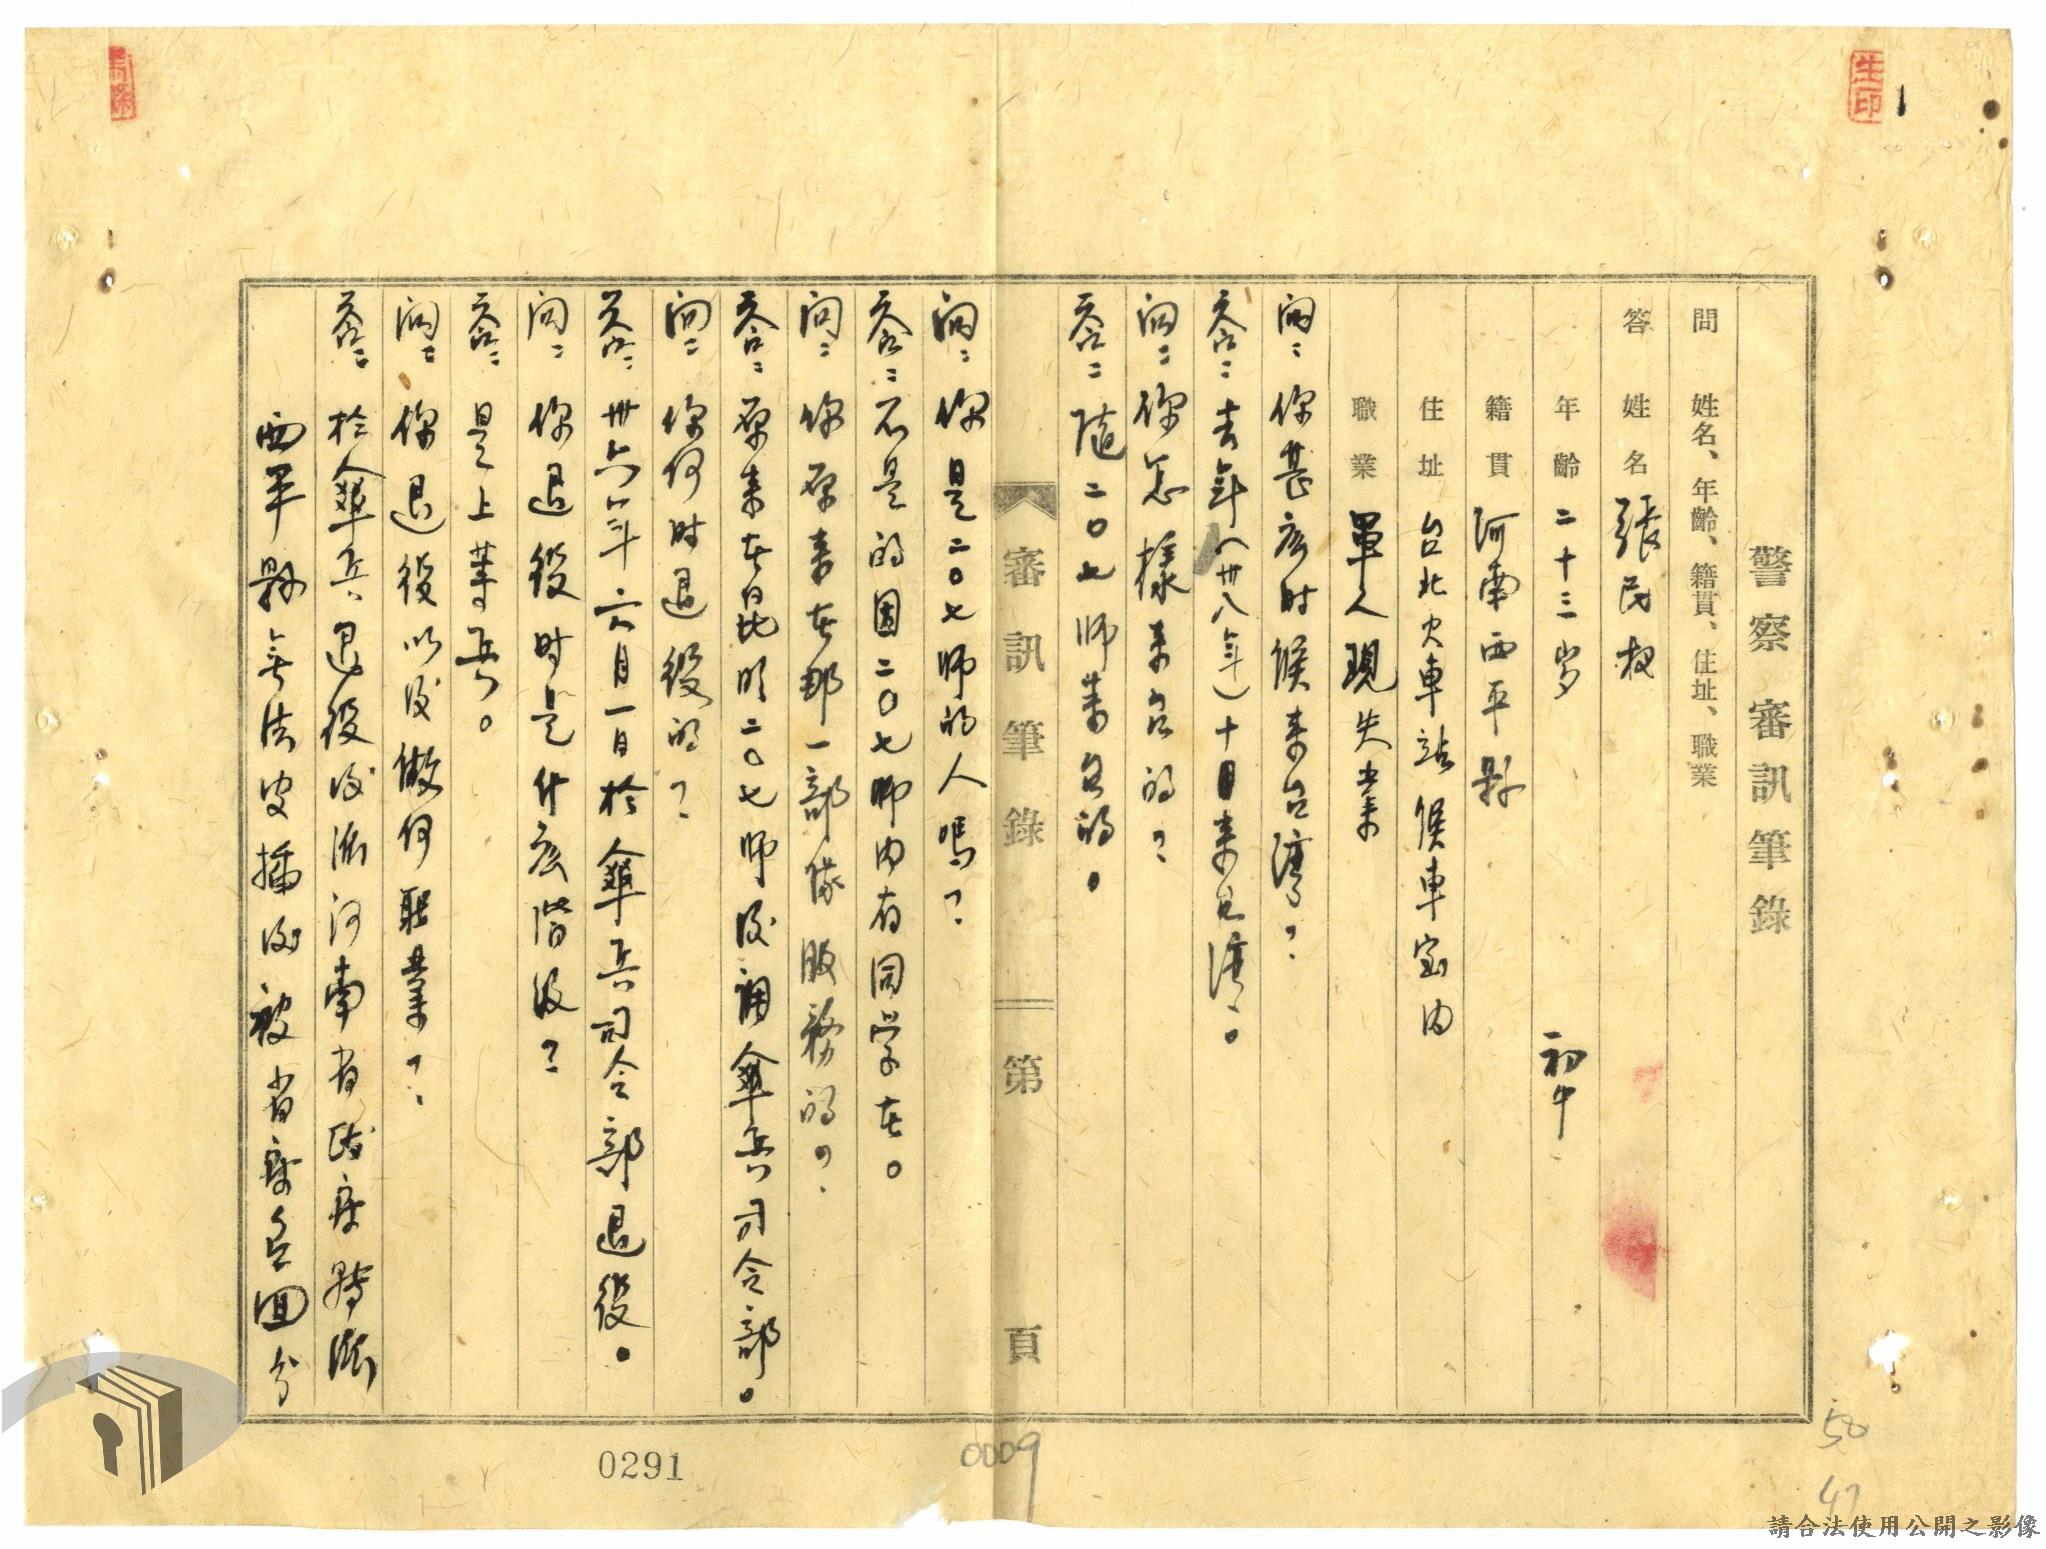 1
警察審訊筆錄
問 姓名、年齡、籍貫、住址、職業
答 姓名 張民权
年齡 二十三岁 初中
籍貫 河南西平县
住址 台北火車站候車室內
職業 軍人現失業
问：你甚広时候来台湾？
答：去年（卅八年）十月来台湾。
问：你怎樣来台的？
答：隨二〇七师来台的。
審訊筆錄 第 頁
问：你是二〇七师的人嗎？
答：不是的因二〇七师内有同学在。
问：你原来在那一部隊服務的？
答：原来在昆明二〇七师後調傘兵司令部。
问：你何时退役的？
答：卅六年六月一日於傘兵司令部退役。
问：你退役时是什広階级？
答：是上等兵。
问：你退役以後做何职業？
答：於傘兵退役後派河南省政府轉派
西平县無法安插後被省府色回分
0291
0009
50
47
請合法使用公開之影像